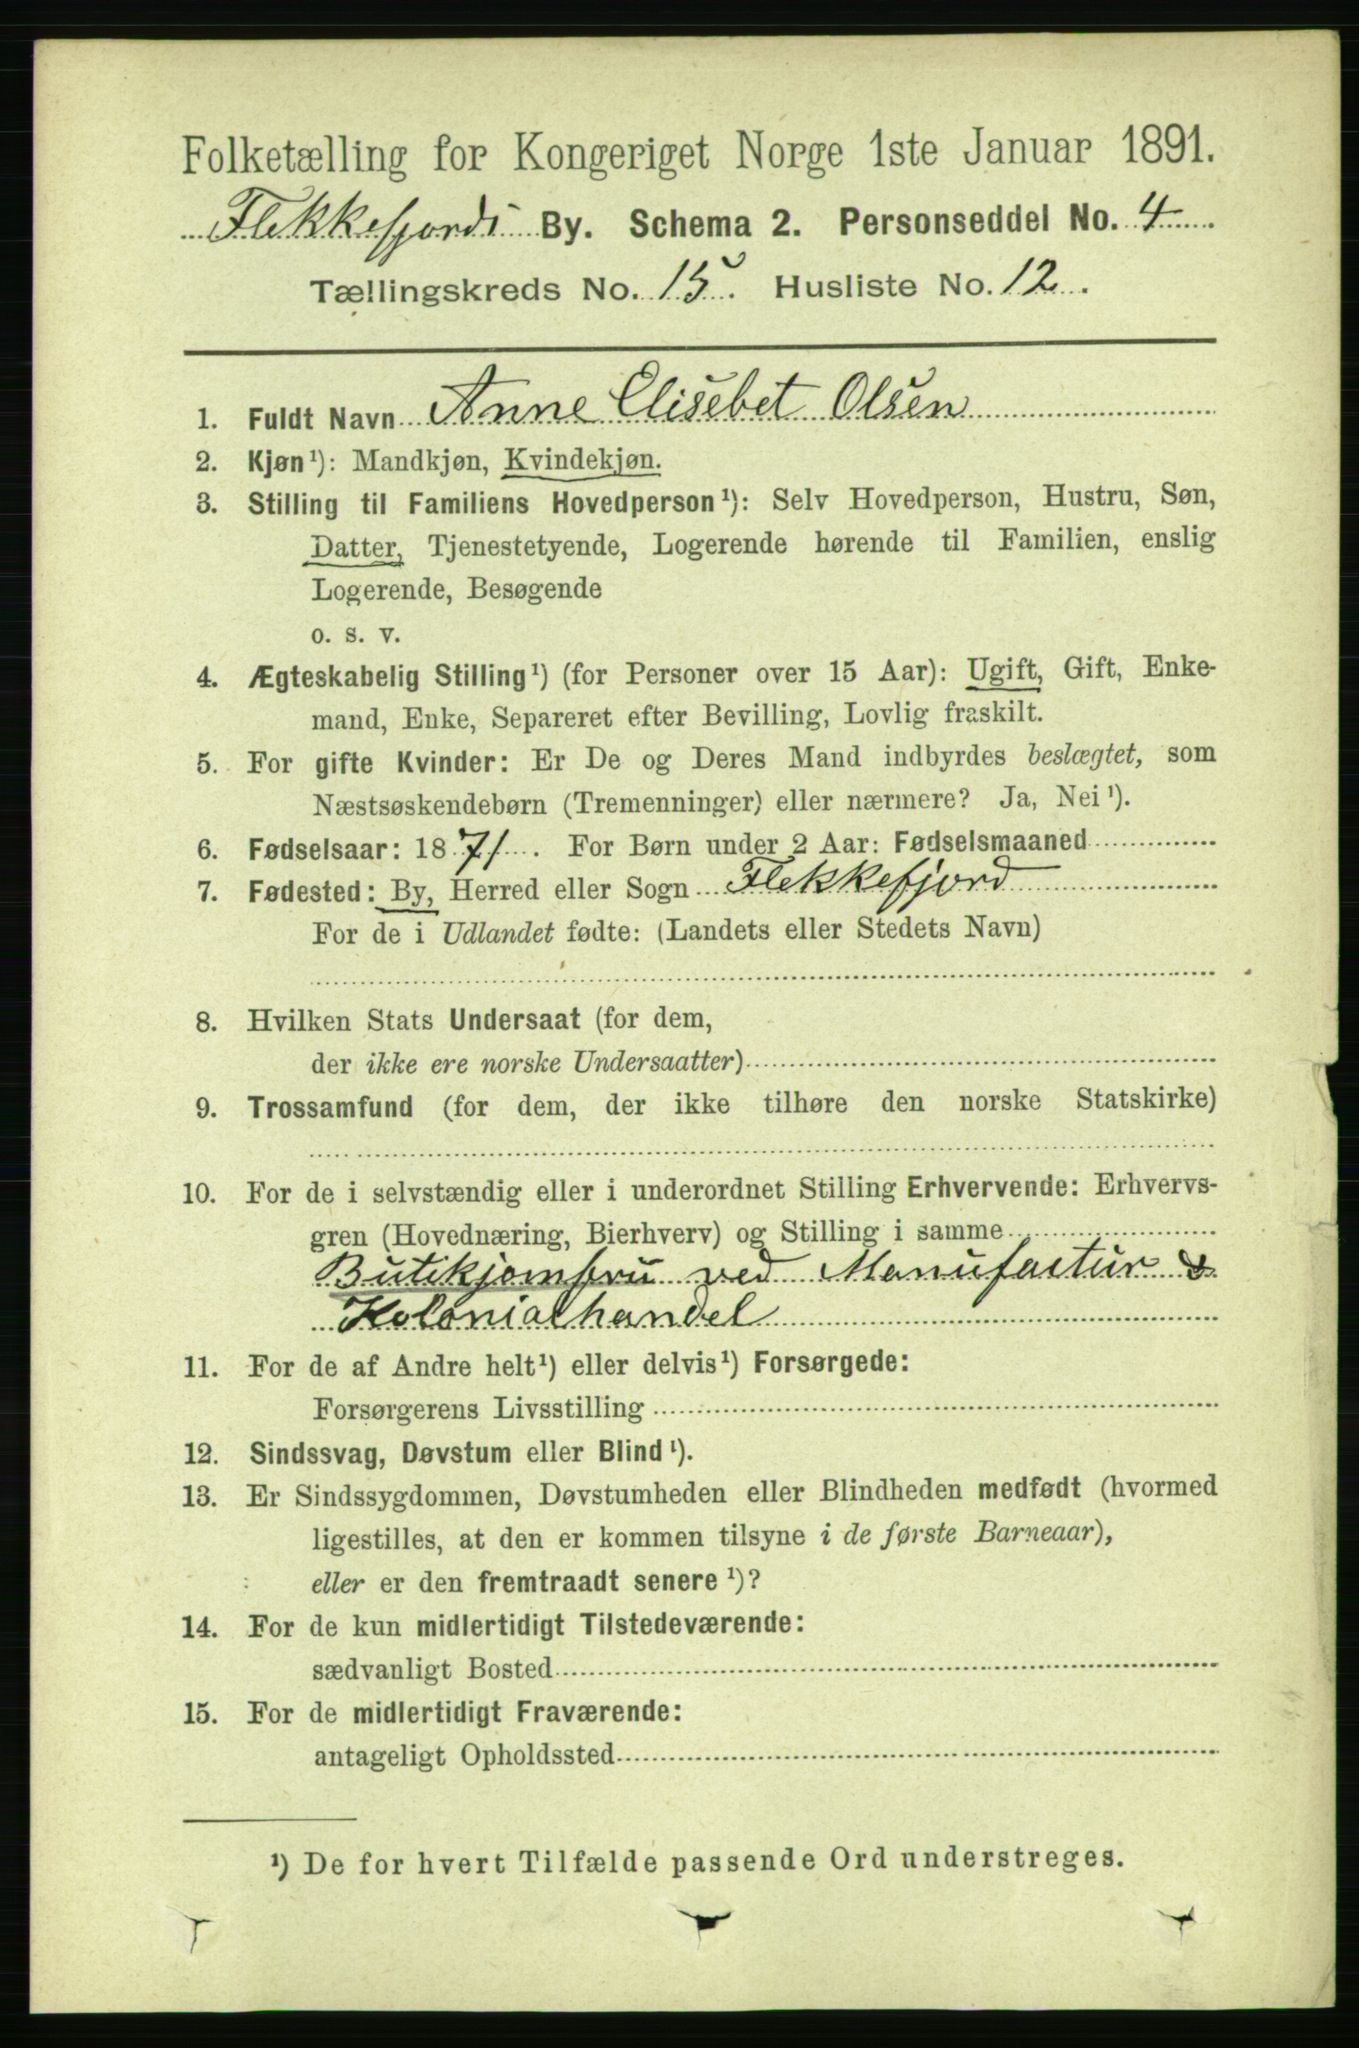 Folketælling for Kongeriget Norge 1ste Januar 1891.
Flekkefjords By. Schema 2. Personseddel No. 4
Tællingskreds No. 15. Husliste No. 12.
1. Fuldt Navn Anne Elisebet Olsen
2. Kjøn¹): Mandkjøn, Kvindekjøn.
3. Stilling til Familiens Hovedperson¹): Selv Hovedperson, Hustru, Søn,
Datter, Tjenestetyende, Logerende hørende til Familien, enslig
Logerende, Besøgende
o. s. v.
4. Ægteskabelig Stilling¹) (for Personer over 15 Aar): Ugift, Gift, Enke-
mand, Enke, Separeret efter Bevilling, Lovlig fraskilt.
5. For gifte Kvinder: Er De og Deres Mand indbyrdes beslægtet, som
Næstsøskendebørn (Tremenninger) eller nærmere? Ja, Nei¹).
6. Fødselsaar: 1871. For Børn under 2 Aar: Fødselsmaaned
7. Fødested: By, Herred eller Sogn Flekkefjord
For de i Udlandet fødte: (Landets eller Stedets Navn)
8. Hvilken Stats Undersaat (for dem,
der ikke ere norske Undersaatter)
9. Trossamfund (for dem, der ikke tilhøre den norske Statskirke)
10. For de i selvstændig eller i underordnet Stilling Erhvervende: Erhvervs-
gren (Hovednæring, Bierhverv) og Stilling i samme
Butikjomfru ved Manufactur &
Kolonialhandel
11. For de af Andre helt¹) eller delvis¹) Forsørgede:
Forsørgerens Livsstilling
12. Sindssvag, Døvstum eller Blind¹).
13. Er Sindssygdommen, Døvstumheden eller Blindheden medfødt (hvormed
ligestilles, at den er kommen tilsyne i de første Barneaar),
eller er den fremtraadt senere¹)?
14. For de kun midlertidigt Tilstedeværende:
sædvanligt Bosted
15. For de midlertidigt Fraværende:
antageligt Opholdssted
¹) De for hvert Tilfælde passende Ord understreges.